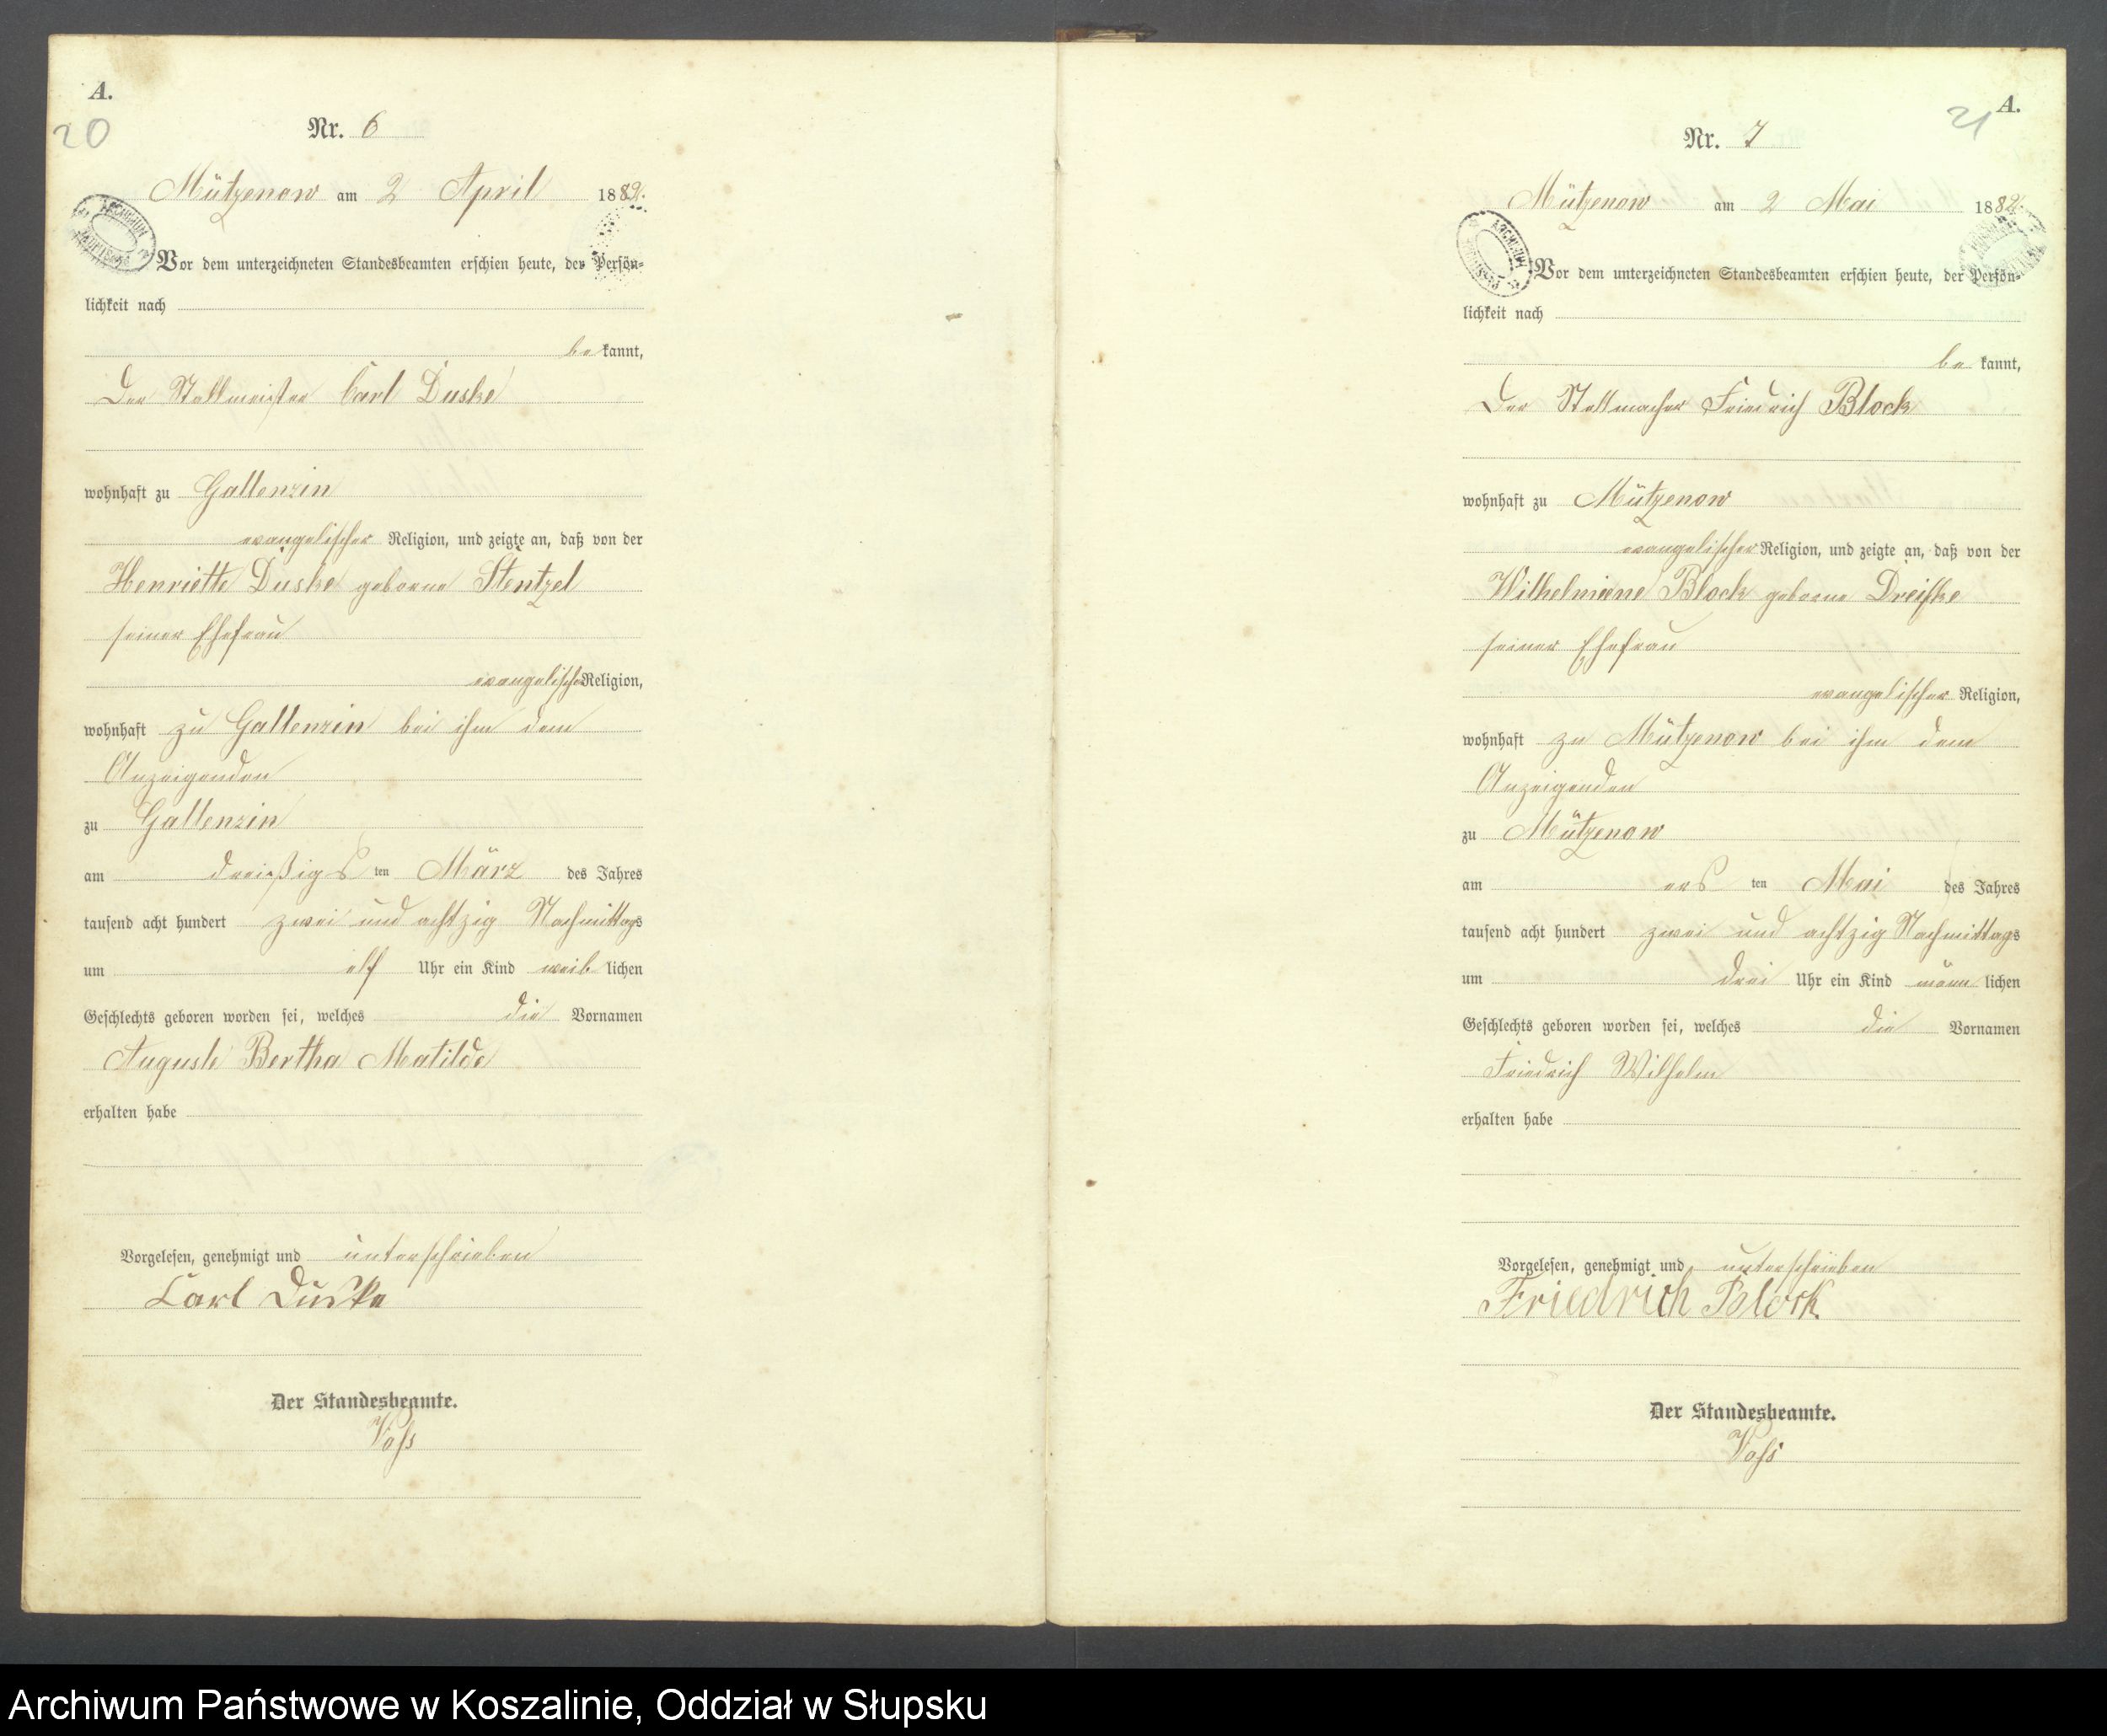 A.
20
Nr. 6
Mützenow am 2 April 1882.
Vor dem unterzeichneten Standesbeamten erschien heute, der Persön-
lichkeit nach
be kannt,
der Stellmeister Carl Duske
wohnhaft zu Gallenzin
evangelischer Religion, und zeigte an, daß von der
Henriette Duske geborne Stentzel
seiner Ehefrau
evangelischer Religion,
wohnhaft zu Gallenzin bei ihm dem
Anzeigenden
zu Gallenzin
am dreißigs ten März des Jahres
tausend acht hundert zwei und achtzig Nachmittags
um elf Uhr ein Kind weib lichen
Geschlechts geboren worden sei, welches die Vornamen
Auguste Bertha Matilde
erhalten habe
Vorgelesen, genehmigt und unterschrieben
Carl Duske
Der Standesbeamte.
Voss
A.
21
Nr. 7
Mützenow am 2 Mai 1882.
ARCHIWUM
Vor dem unterzeichneten Standesbeamten erschien heute, der Persön-
lichkeit nach
be kannt,
der Stellmacher Friedrich Block
wohnhaft zu Mützenow
evangelischer Religion, und zeigte an, daß von der
Wilhelmine Block geborne Dreifke
seiner Ehefrau
evangelischer Religion,
wohnhaft zu Mützenow bei ihm dem
Anzeigenden
zu Mützenow
am ers ten Mai des Jahres
tausend acht hundert zwei und achtzig Nachmittags
um drei Uhr ein Kind männ lichen
Geschlechts geboren worden sei, welches die Vornamen
Friedrich Wilhelm
erhalten habe
Vorgelesen, genehmigt und unterschrieben
Friedrich Block
Der Standesbeamte.
Voss
Archiwum Państwowe w Koszalinie, Oddział w Słupsku